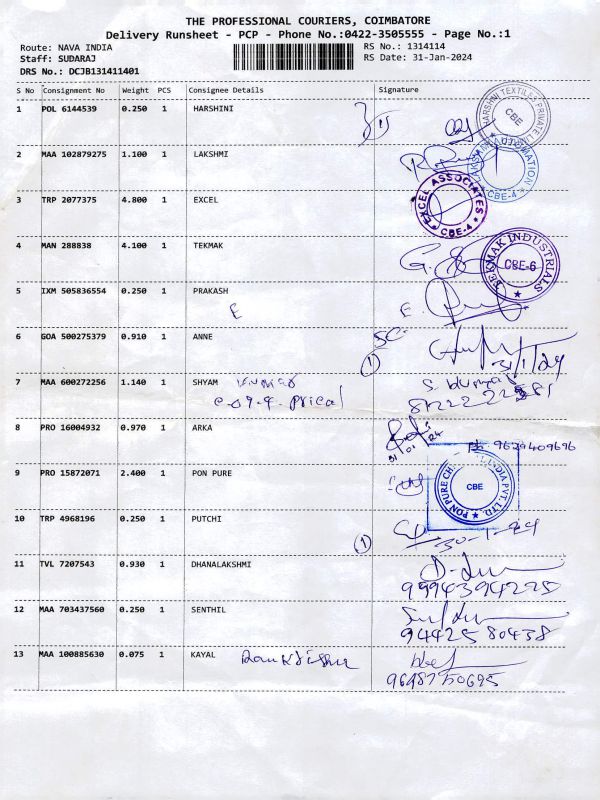 THE PROFESSIONAL COURIERS, COIMBATORE
Delivery Runsheet - PCP - Phone No.:0422-3505555 - Page No.:1
Route: NAVA INDIA RS No.: 1314114
Staff: SUDARAJ RS Date: 31-Jan-2024
DRS No.: DCJB131411401
S No Consignment No Weight PCS Consignee Details Signature
1 POL 6144539 0.250 1 HARSHINI
HARSHNI TEXTILES PRIVATE CBE
2 MAA 102879275 1.100 1 LAKSHMI
AUTOMATION CBE-4
3 TRP 2077375 4.800 1 EXCEL
EXCEL ASSOCIATES CBE-4
4 MAN 288838 4.100 1 TEKMAK
TEKMAK INDUSTRIALS CBE-6
5 IXM 505836554 0.250 1 PRAKASH
E E.
6 GOA 500275379 0.910 1 ANNE
SC.
1 31/1/24
7 MAA 600272256 1.140 1 SHYAM Kumar S. Kumar
8 PRO 16004932 0.970 1 ARKA
31 01 24
9629409696
9 PRO 15872071 2.400 1 PON PURE
PON PURE CH INDIA PVT. LTD. CBE
10 TRP 4968196 0.250 1 PUTCHI
1 30-1-24
11 TVL 7207543 0.930 1 DHANALAKSHMI
9994394275
12 MAA 703437560 0.250 1 SENTHIL
94425 80438
13 MAA 100885630 0.075 1 KAYAL